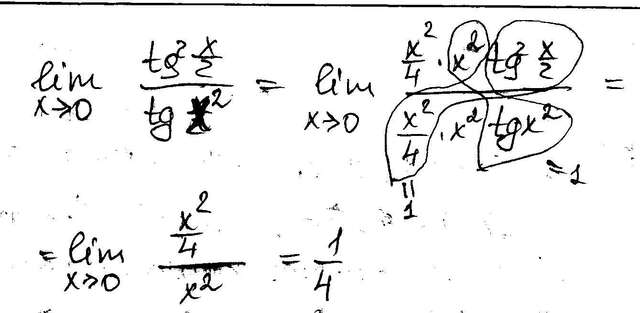 lim x→0 tg² x/2 / tg x² = lim x→0 x²/4 · x² tg² x/2 / x²/4 · x² tg x² =
= 1
= 1
= lim x→0 x²/4 / x² = 1/4